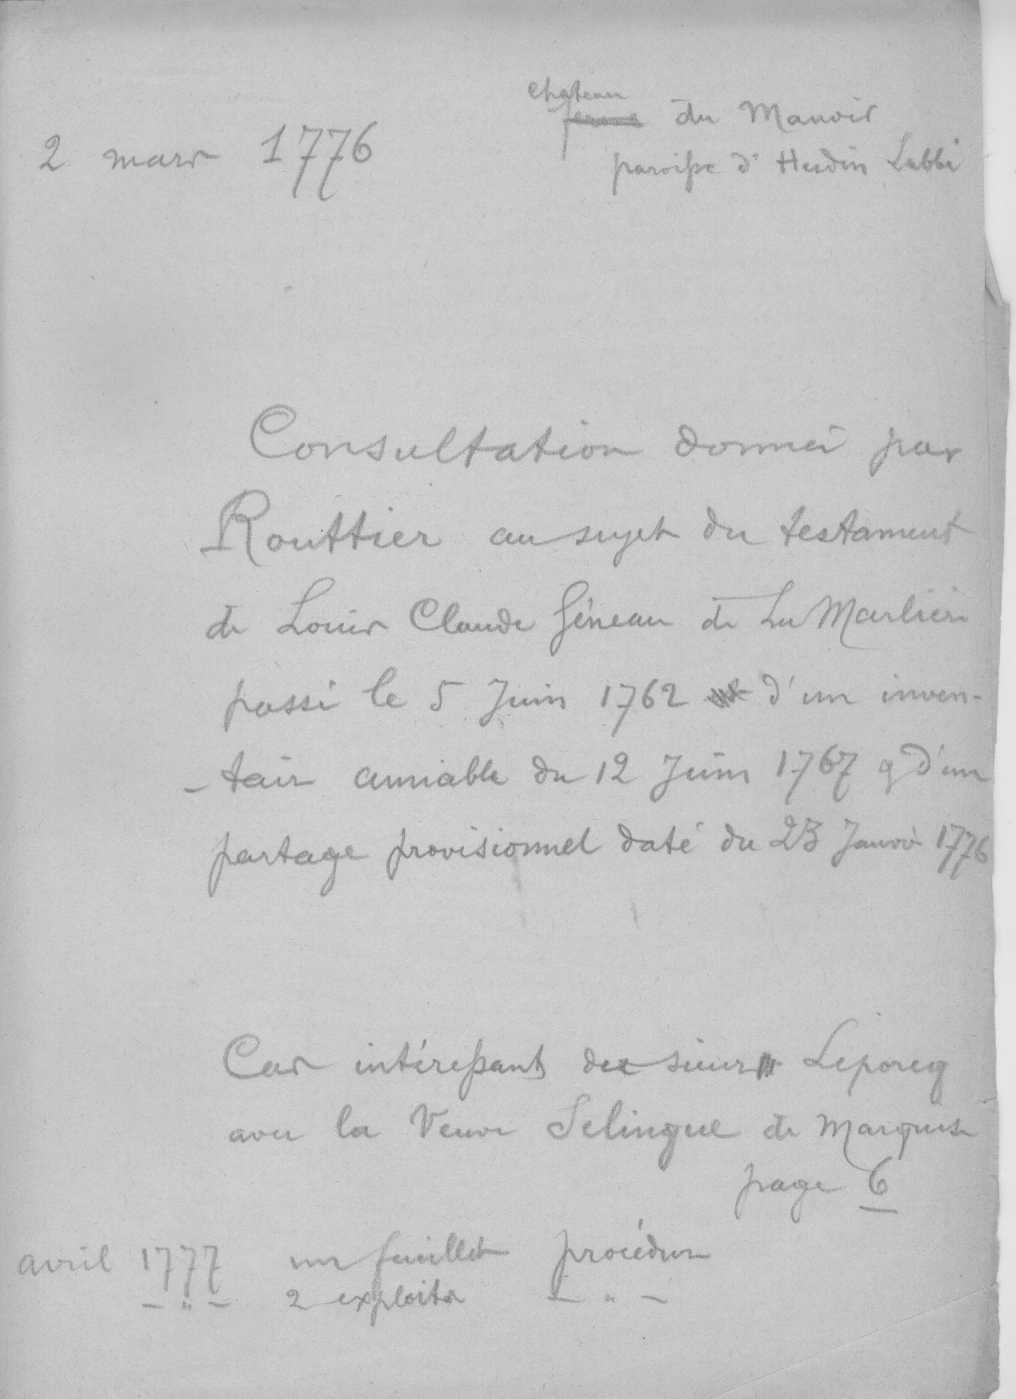 2 mars 1776
Chateau
ferme du Manoir
paroisse d'Hesdin Labbé
Consultation donnée par
Routtier au sujet du testament
de Louis Claude Géneau de La Marlière
passé le 5 Juin 1762 d'un inven-
-taire amiable du 12 Juin 1767 & d'un
partage provisionnel daté du 23 Janvier 1776
Cas intéressant des sieurs Leporcq
avec la Veuve Selingue de Marquise
page 6
avril 1777 un feuillet procédure
– " – 2 exploits – " –